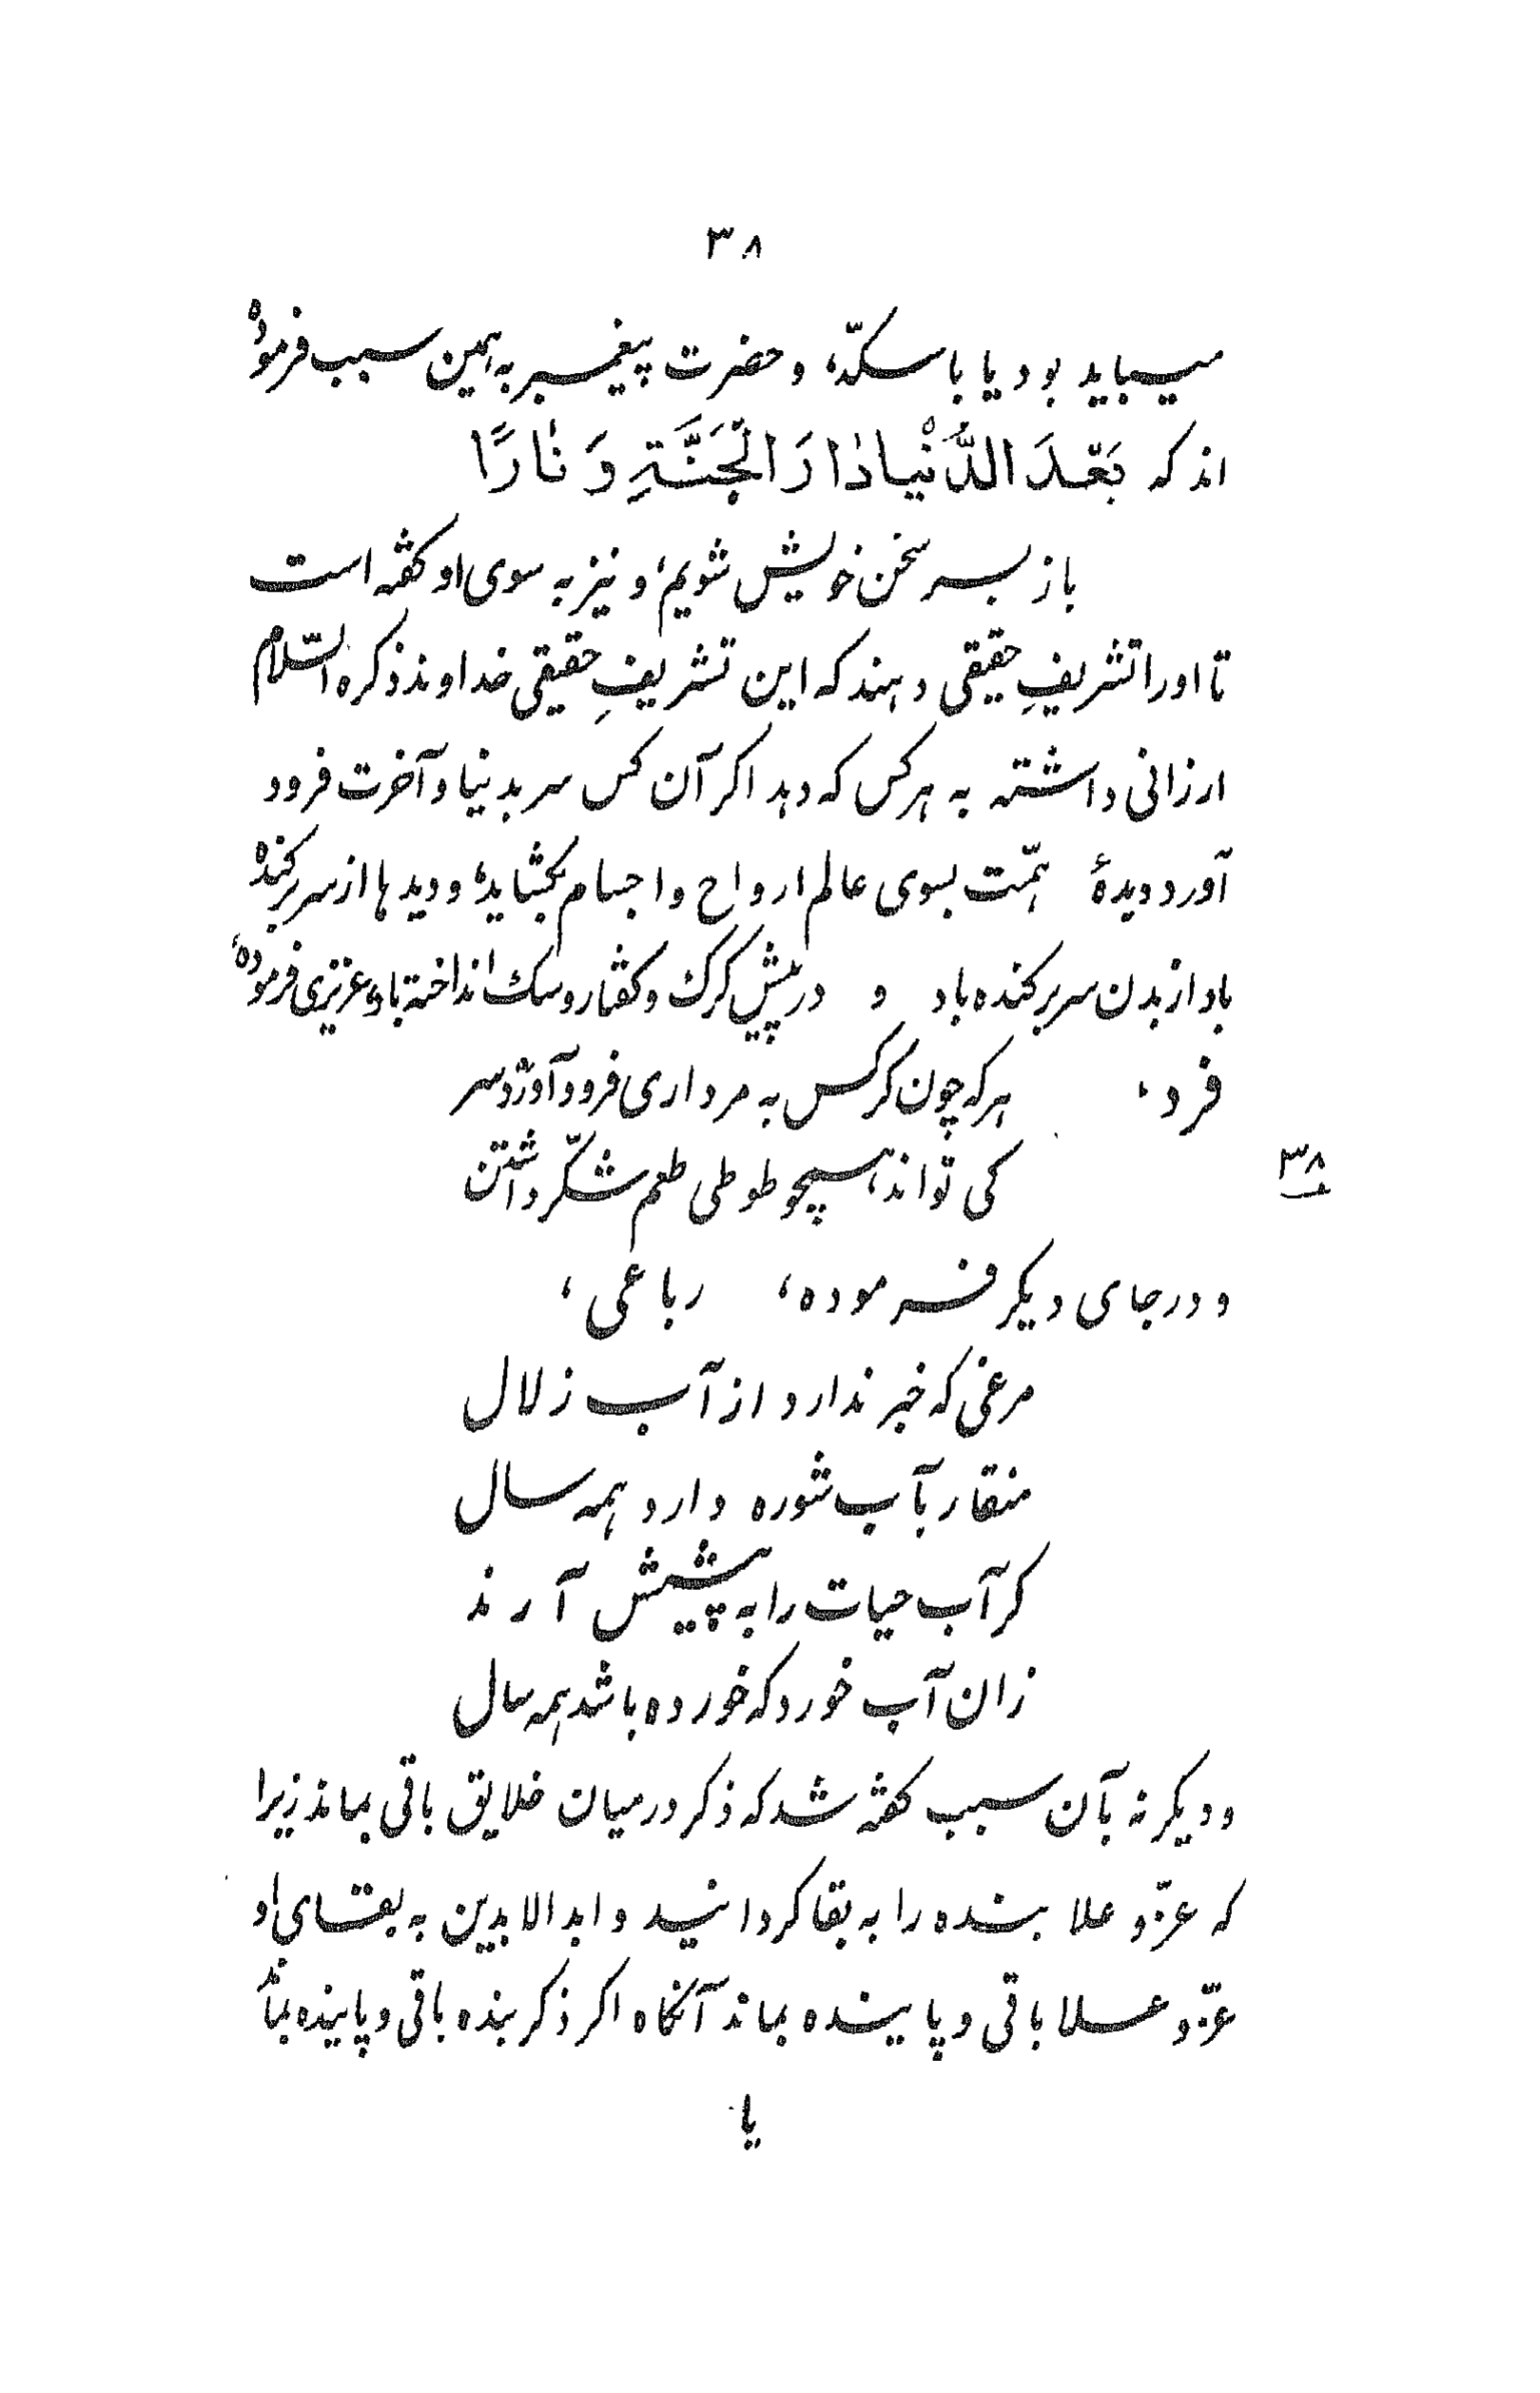 ۳۸
میباید بود یا با سکّه، و حضرت پیغمبر به همین سبب فرموده
اند که بَعْدَ الدُّنْیا دٰارَ الْجَنَّةِ وَ نٰارًا
باز بسر سخن خویش شویم، و نیز به سوی او گفته است
تا او را تشریفِ حقیقی دهند که این تشریفِ حقیقی خداوند ذکره السّلام
ارزانی داشته به هر کس که دهد اکر آن کس سر بدنیا و آخرت فرود
آورد و دیدهٔ همّت بسوی عالم ارواح و اجسام بکشاید، و دیدها از سر برکنده
باد از بدن سر برکنده باد و در پیش کرک و کفتار و سک انداخته باد، عزیزی فرموده،
فرد، هر که چون کرکس به مرداری فرود آورد سر
کی تواند همچو طوطی طعم شکّر داشتن
۳۸
و در جای دیکر فرموده، رباعی،
مرغی که خبر ندارد از آب زلال
منقار بآب شوره دارد همه سال
کر آب حیات را به پیشش آرند
زان آب خورد که خورده باشد همه سال
و دیکر نه بآن سبب کفته شد که ذکر در میان خلایق باقی بماند زیرا
که عزّ و علا بنده را به بقا کردانید و ابد الابدین به بقای او
عزّ و علا باقی و پاینده بماند آنکاه اکر ذکر بنده باقی و پاینده بماند
یا